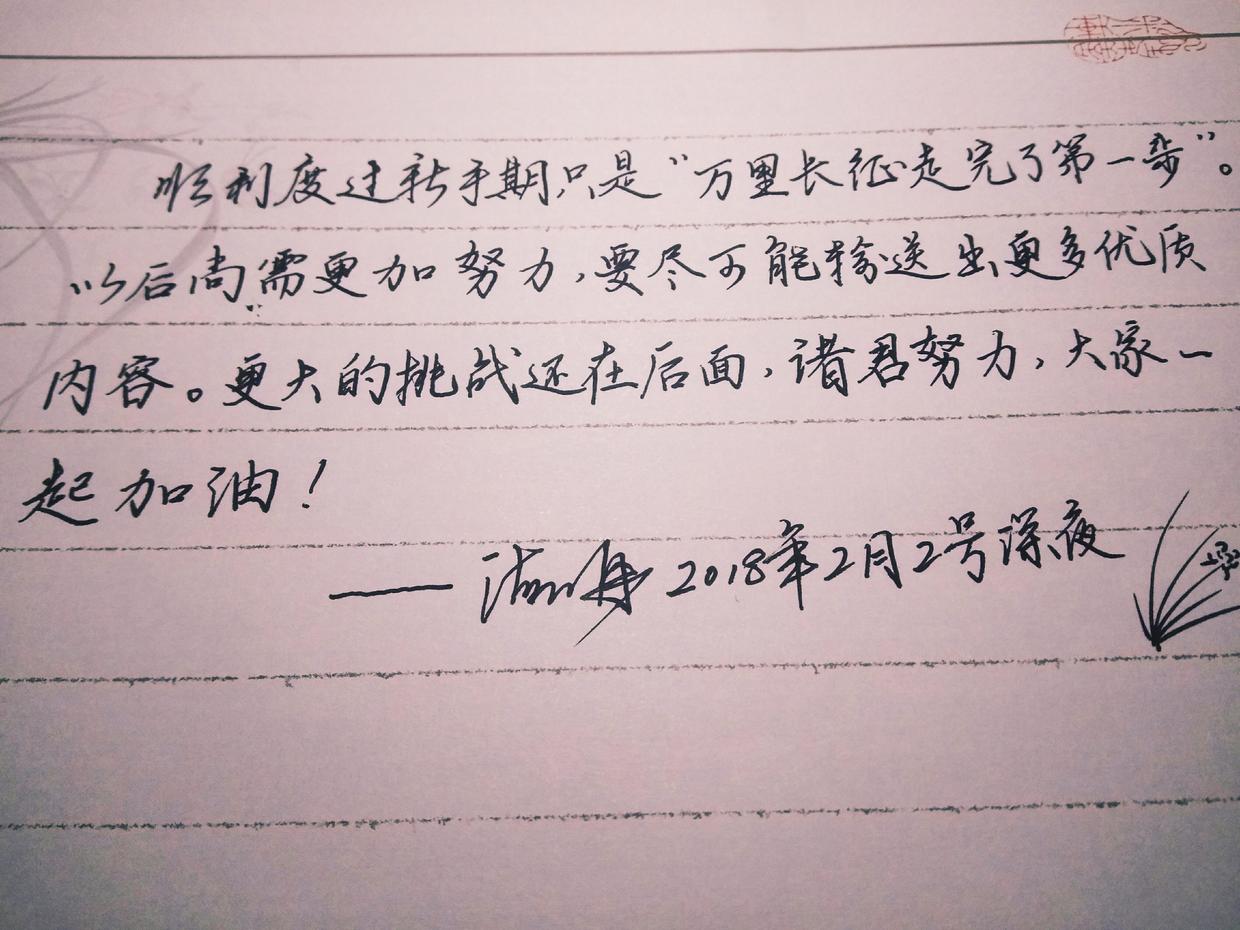 顺利度过新手期，只是“万里长征走完了第一步”。
以后尚需更加努力，要尽可能输送出更多优质
内容。更大的挑战还在后面，诸君努力，大家一
起加油！
—— 2018年2月2号深夜